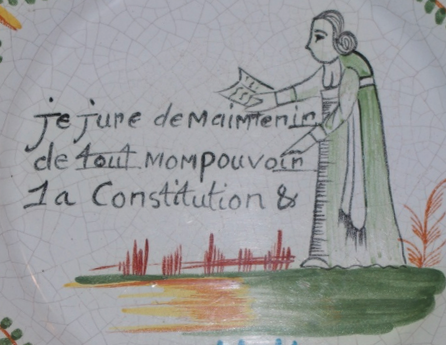 je jure de maimtenir
de tout momPouvoir
la Constitution &